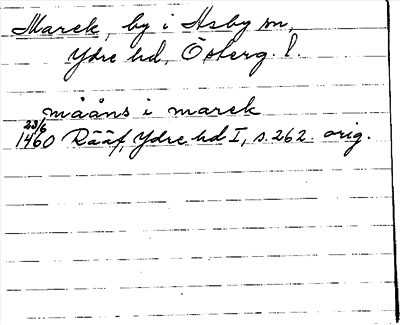 Marek, by i Asby sn,
Ydre hd, Österg. l.
mååns i marek
23/6
1460 Rääf, Ydre hd I, s. 262. orig.